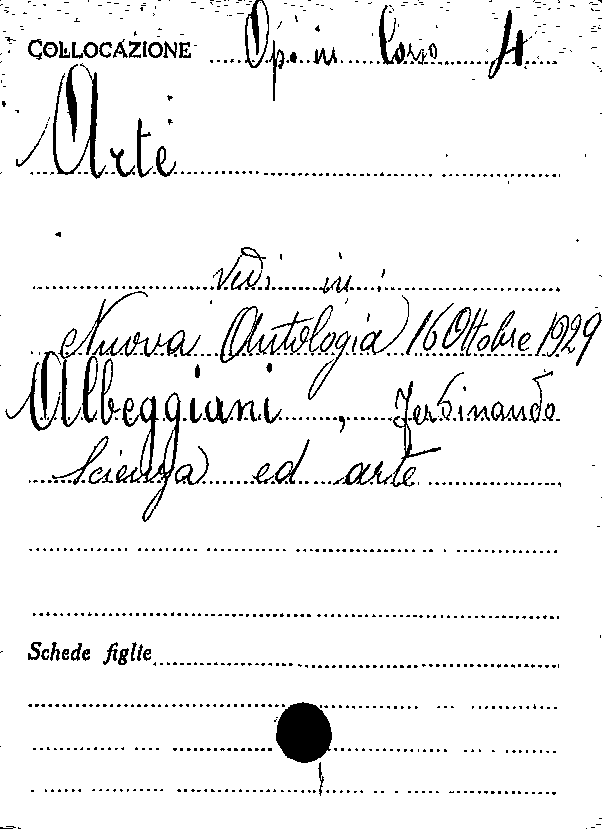 COLLOCAZIONE Op. in Corso 4
Arte
Vedi in:
Nuova Antologia 16 Ottobre 1929
Albeggiani, Ferdinando
Scienza ed arte
Schede figlie